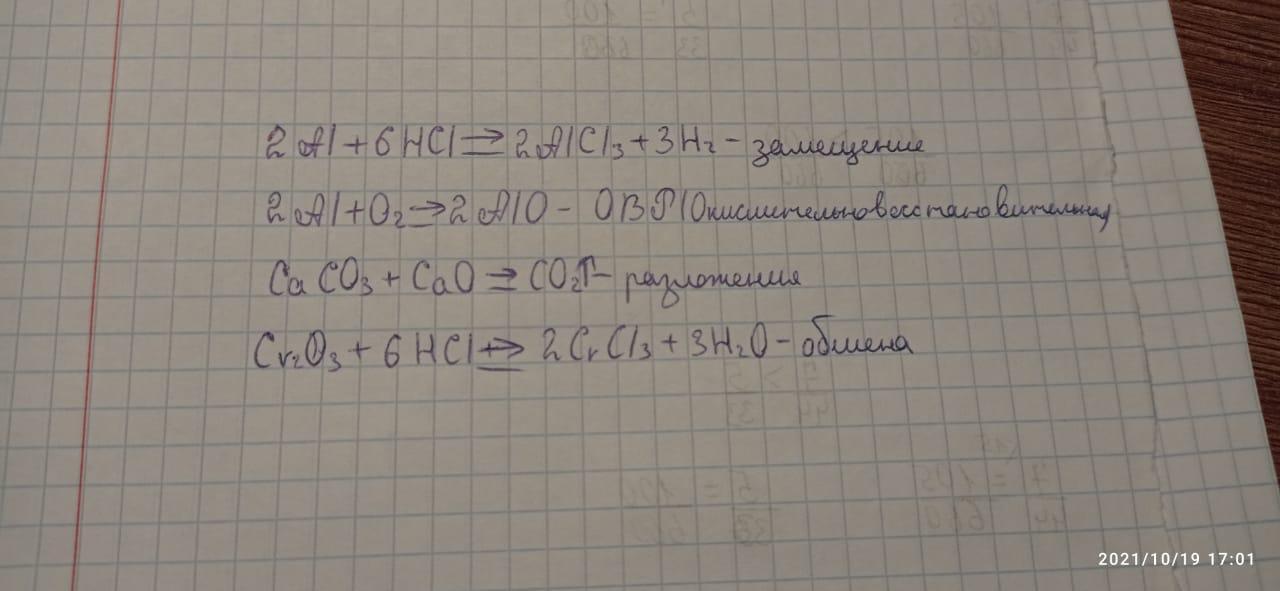 2Al + 6HCl ⇒ 2AlCl₃ + 3H₂ - замещение
2Al + O₂ ⇒ 2AlO - ОВР (Окислительновосстановительная)
CaCO₃ + CaO ⇒ CO₂↑ - разложения
Cr₂O₃ + 6HCl ⇒ 2CrCl₃ + 3H₂O - обмена
2021/10/19 17:01